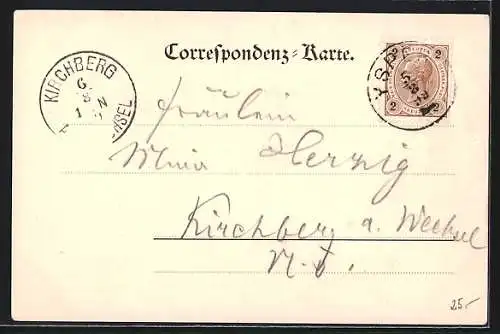 Correspondenz=Karte.
KIRCHBERG
2 2
Fräulein
Mina Herzig
Kirchberg a. Wechsel
N. Ö.
25.-